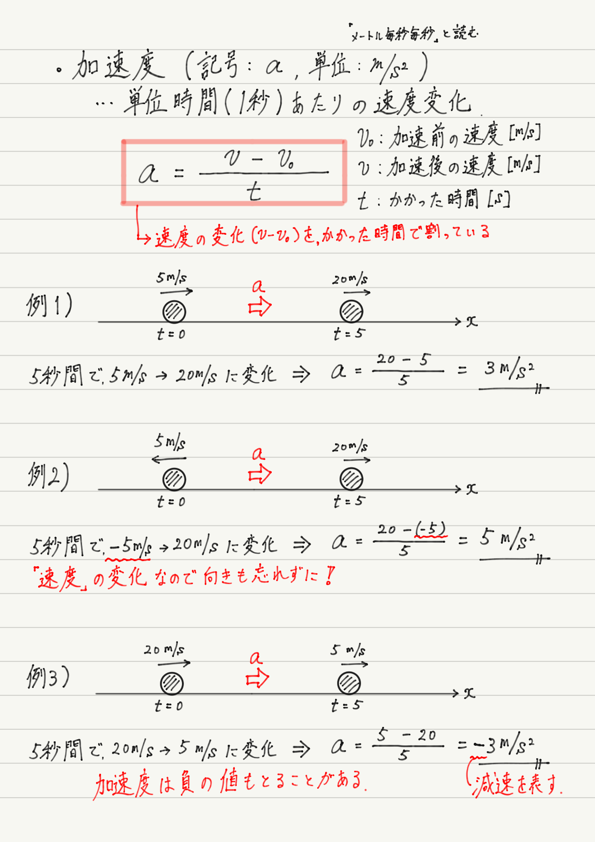 「メートル毎秒毎秒」と読む
・加速度 (記号: a, 単位: m/s²)
… 単位時間(1秒)あたりの速度変化
a = (v - v₀)/t
v₀: 加速前の速度[m/s]
v: 加速後の速度[m/s]
t: かかった時間[s]
↳速度の変化(v-v₀)を、かかった時間で割っている
例1)
5m/s a 20m/s
t=0 t=5 x
5秒間で、5m/s → 20m/sに変化 ⇒ a = (20 - 5)/5 = 3 m/s²
例2)
5m/s a 20m/s
t=0 t=5 x
5秒間で、-5m/s → 20m/sに変化 ⇒ a = (20 - (-5))/5 = 5 m/s²
「速度」の変化なので向きも忘れずに!
例3)
20m/s a 5m/s
t=0 t=5 x
5秒間で、20m/s → 5m/sに変化 ⇒ a = (5 - 20)/5 = -3m/s²
加速度は負の値もとることがある. 減速を表す.